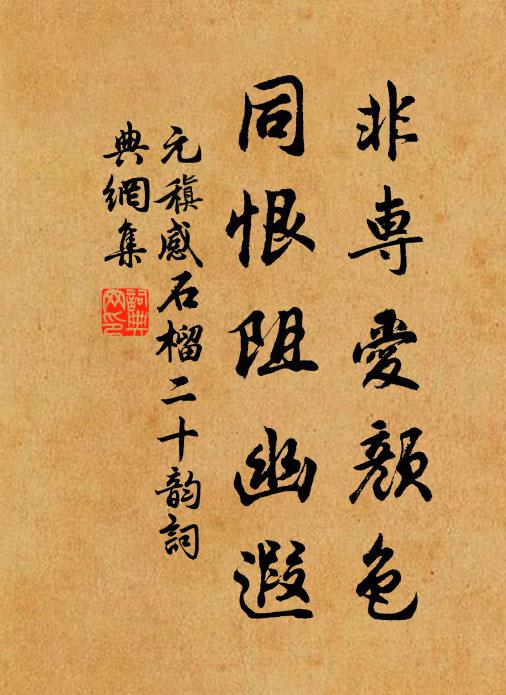 非專愛顔色
同恨阻幽遐
元稹感石榴二十韵詞
典網集
詞典
网印